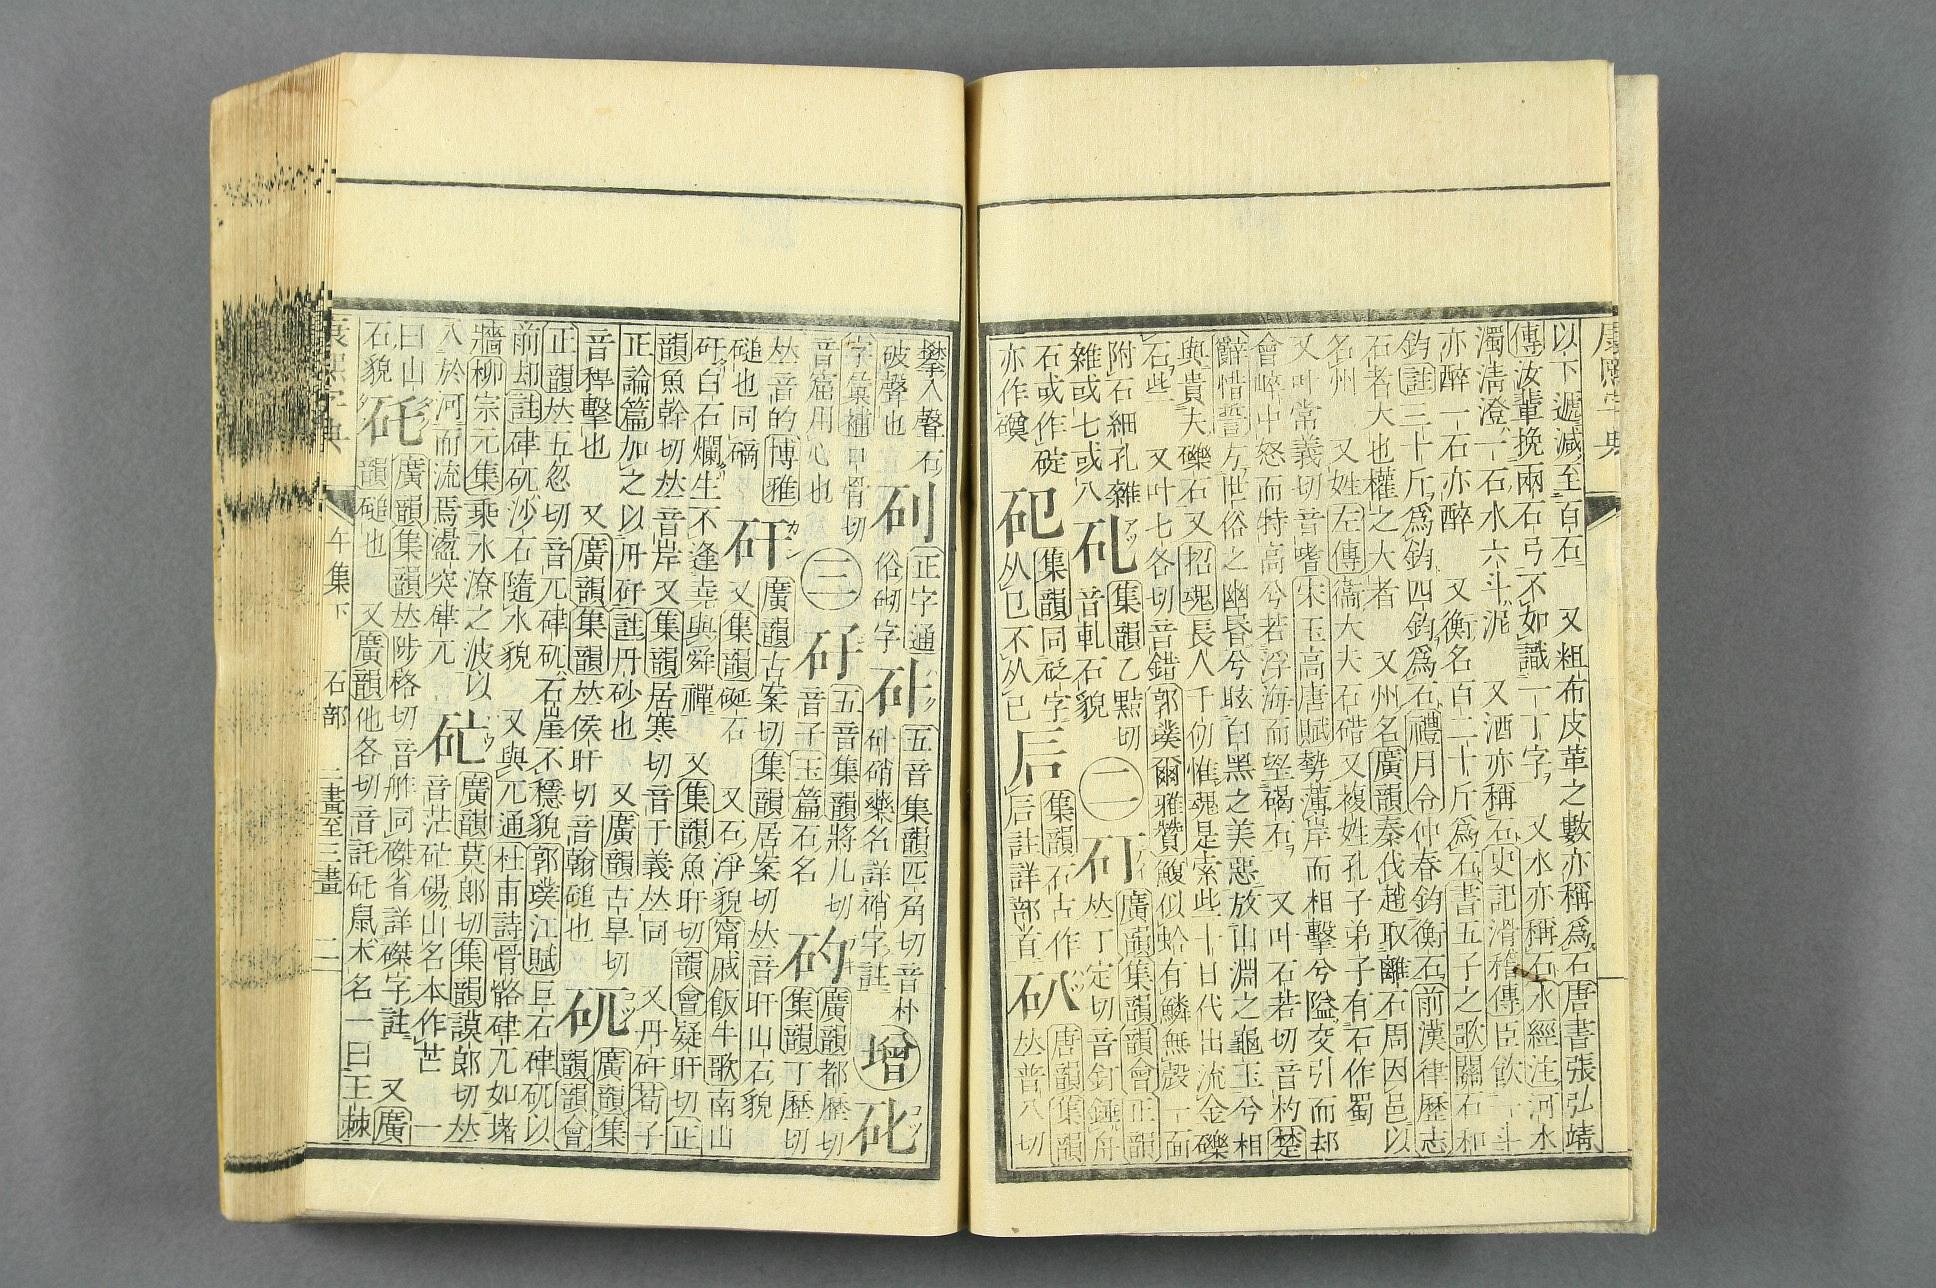 康熙字典
以下遞減至百石 又粗布皮革之數亦稱爲石唐書張弘靖
傳汝輩挽兩石弓不如識一丁字 又水亦稱石水經注河水
濁淸澄一石水六斗泥 又酒亦稱石史記滑稽傳臣飮一斗
亦醉一石亦醉 又衡名百二十斤爲石書五子之歌關石和
鈞註三十斤爲鈞四鈞爲石禮月令仲春鈞衡石前漢律歷志
石者大也權之大者 又州名廣韻秦伐趙取離石周因邑以
名州 又姓左傳衞大夫石碏又複姓孔子弟子有石作蜀
又叶常義切音嗜宋玉高唐賦勢薄岸而相擊兮隘交引而却
會崪中怒而特高兮若浮海而望碣石 又叶石若切音杓楚
辭惜誓方世俗之幽昏兮眩白黑之美惡放山淵之龜玉兮相
與貴夫礫石又招魂長人千仞惟魂是索些十日代出流金礫
石些 又叶七各切音錯郭璞爾雅贊鰒似蛤有鱗無殼一面
附石細孔雜
雜或七或八
アツ
集韻乙黠切
音軋石貌
二
矴
テイ
廣韻集韻韻會正韻
𠀤丁定切音釘錘舟
石或作碇
亦作磸
集韻同砭字
从㔾不从已
后
集韻石古作
后註詳部首
ハツ
唐韻集韻
𠀤普八切
攀入聲石
破聲也
正字通
俗砌字
ハク
五音集韻匹角切音朴
硝藥名詳硝字註
增
コツ
字彙補甲骨切
音窟用心也
三
矷
五音集韻將几切
音子玉篇石名
テキ
廣韻都歷切
集韻丁歷切
𠀤音的博雅
磓也同磧
矸
カン
廣韻古案切集韻居案切𠀤音旰山石貌
又集韻硟石 又石淨貌甯戚飯牛歌南山
矸白石爛生不逢堯與舜禪 又集韻魚旰切韻會疑旰切正
韻魚幹切𠀤音岸又集韻居寒切音干義𠀤同 又丹矸荀子
正論篇加之以丹矸註丹砂也 又廣韻古旱切
音稈擊也 又廣韻集韻𠀤侯旰切音翰磓也
矹
コツ
廣韻集
韻韻會
正韻𠀤五忽切音兀硉矹石崖不穩貌郭璞江賦巨石硉矹以
前却註硉矹沙石隨水貌 又與兀通杜甫詩骨骼硉兀如堵
牆柳宗元集乘水潦之波以
入於河而流焉盪突硉兀
バウ
廣韻莫郎切集韻謨郎切𠀤
音茫硭碭山名本作芒 一
曰山
石貌
矺
タク
廣韻集韻𠀤陟格切音舴同磔省詳磔字註 又廣
韻磓也 又廣韻他各切音託矺鼠木名一曰王棘
康熙字典 午集下 石部 二畫至三畫 二